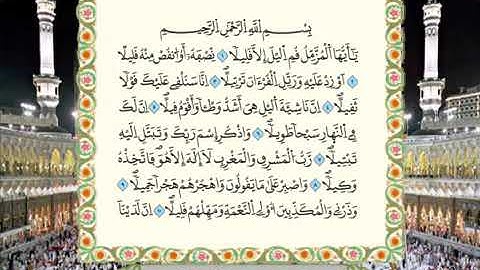 بِسْمِ اللَّهِ الرَّحْمَٰنِ الرَّحِيمِ
يَا أَيُّهَا الْمُزَّمِّلُ قُمِ الَّيْلَ إِلَّا قَلِيلًا ۝١ نِصْفَهُ أَوِ انْقُصْ مِنْهُ قَلِيلًا
۝٢ أَوْ زِدْ عَلَيْهِ وَرَتِّلِ الْقُرْءَانَ تَرْتِيلًا ۝٣ إِنَّا سَنُلْقِي عَلَيْكَ قَوْلًا
ثَقِيلًا ۝٤ إِنَّ نَاشِئَةَ الَّيْلِ هِيَ أَشَدُّ وَطْئًا وَأَقْوَمُ قِيلًا ۝٥ إِنَّ لَكَ
فِي النَّهَارِ سَبْحًا طَوِيلًا ۝٦ وَاذْكُرِ اسْمَ رَبِّكَ وَتَبَتَّلْ إِلَيْهِ
تَبْتِيلًا ۝٧ رَّبُّ الْمَشْرِقِ وَالْمَغْرِبِ لَا إِلَٰهَ إِلَّا هُوَ فَاتَّخِذْهُ
وَكِيلًا ۝٨ وَاصْبِرْ عَلَىٰ مَا يَقُولُونَ وَاهْجُرْهُمْ هَجْرًا جَمِيلًا ۝٩
وَذَرْنِي وَالْمُكَذِّبِينَ أُولِي النَّعْمَةِ وَمَهِّلْهُمْ قَلِيلًا ۝١٠ إِنَّ لَدَيْنَا